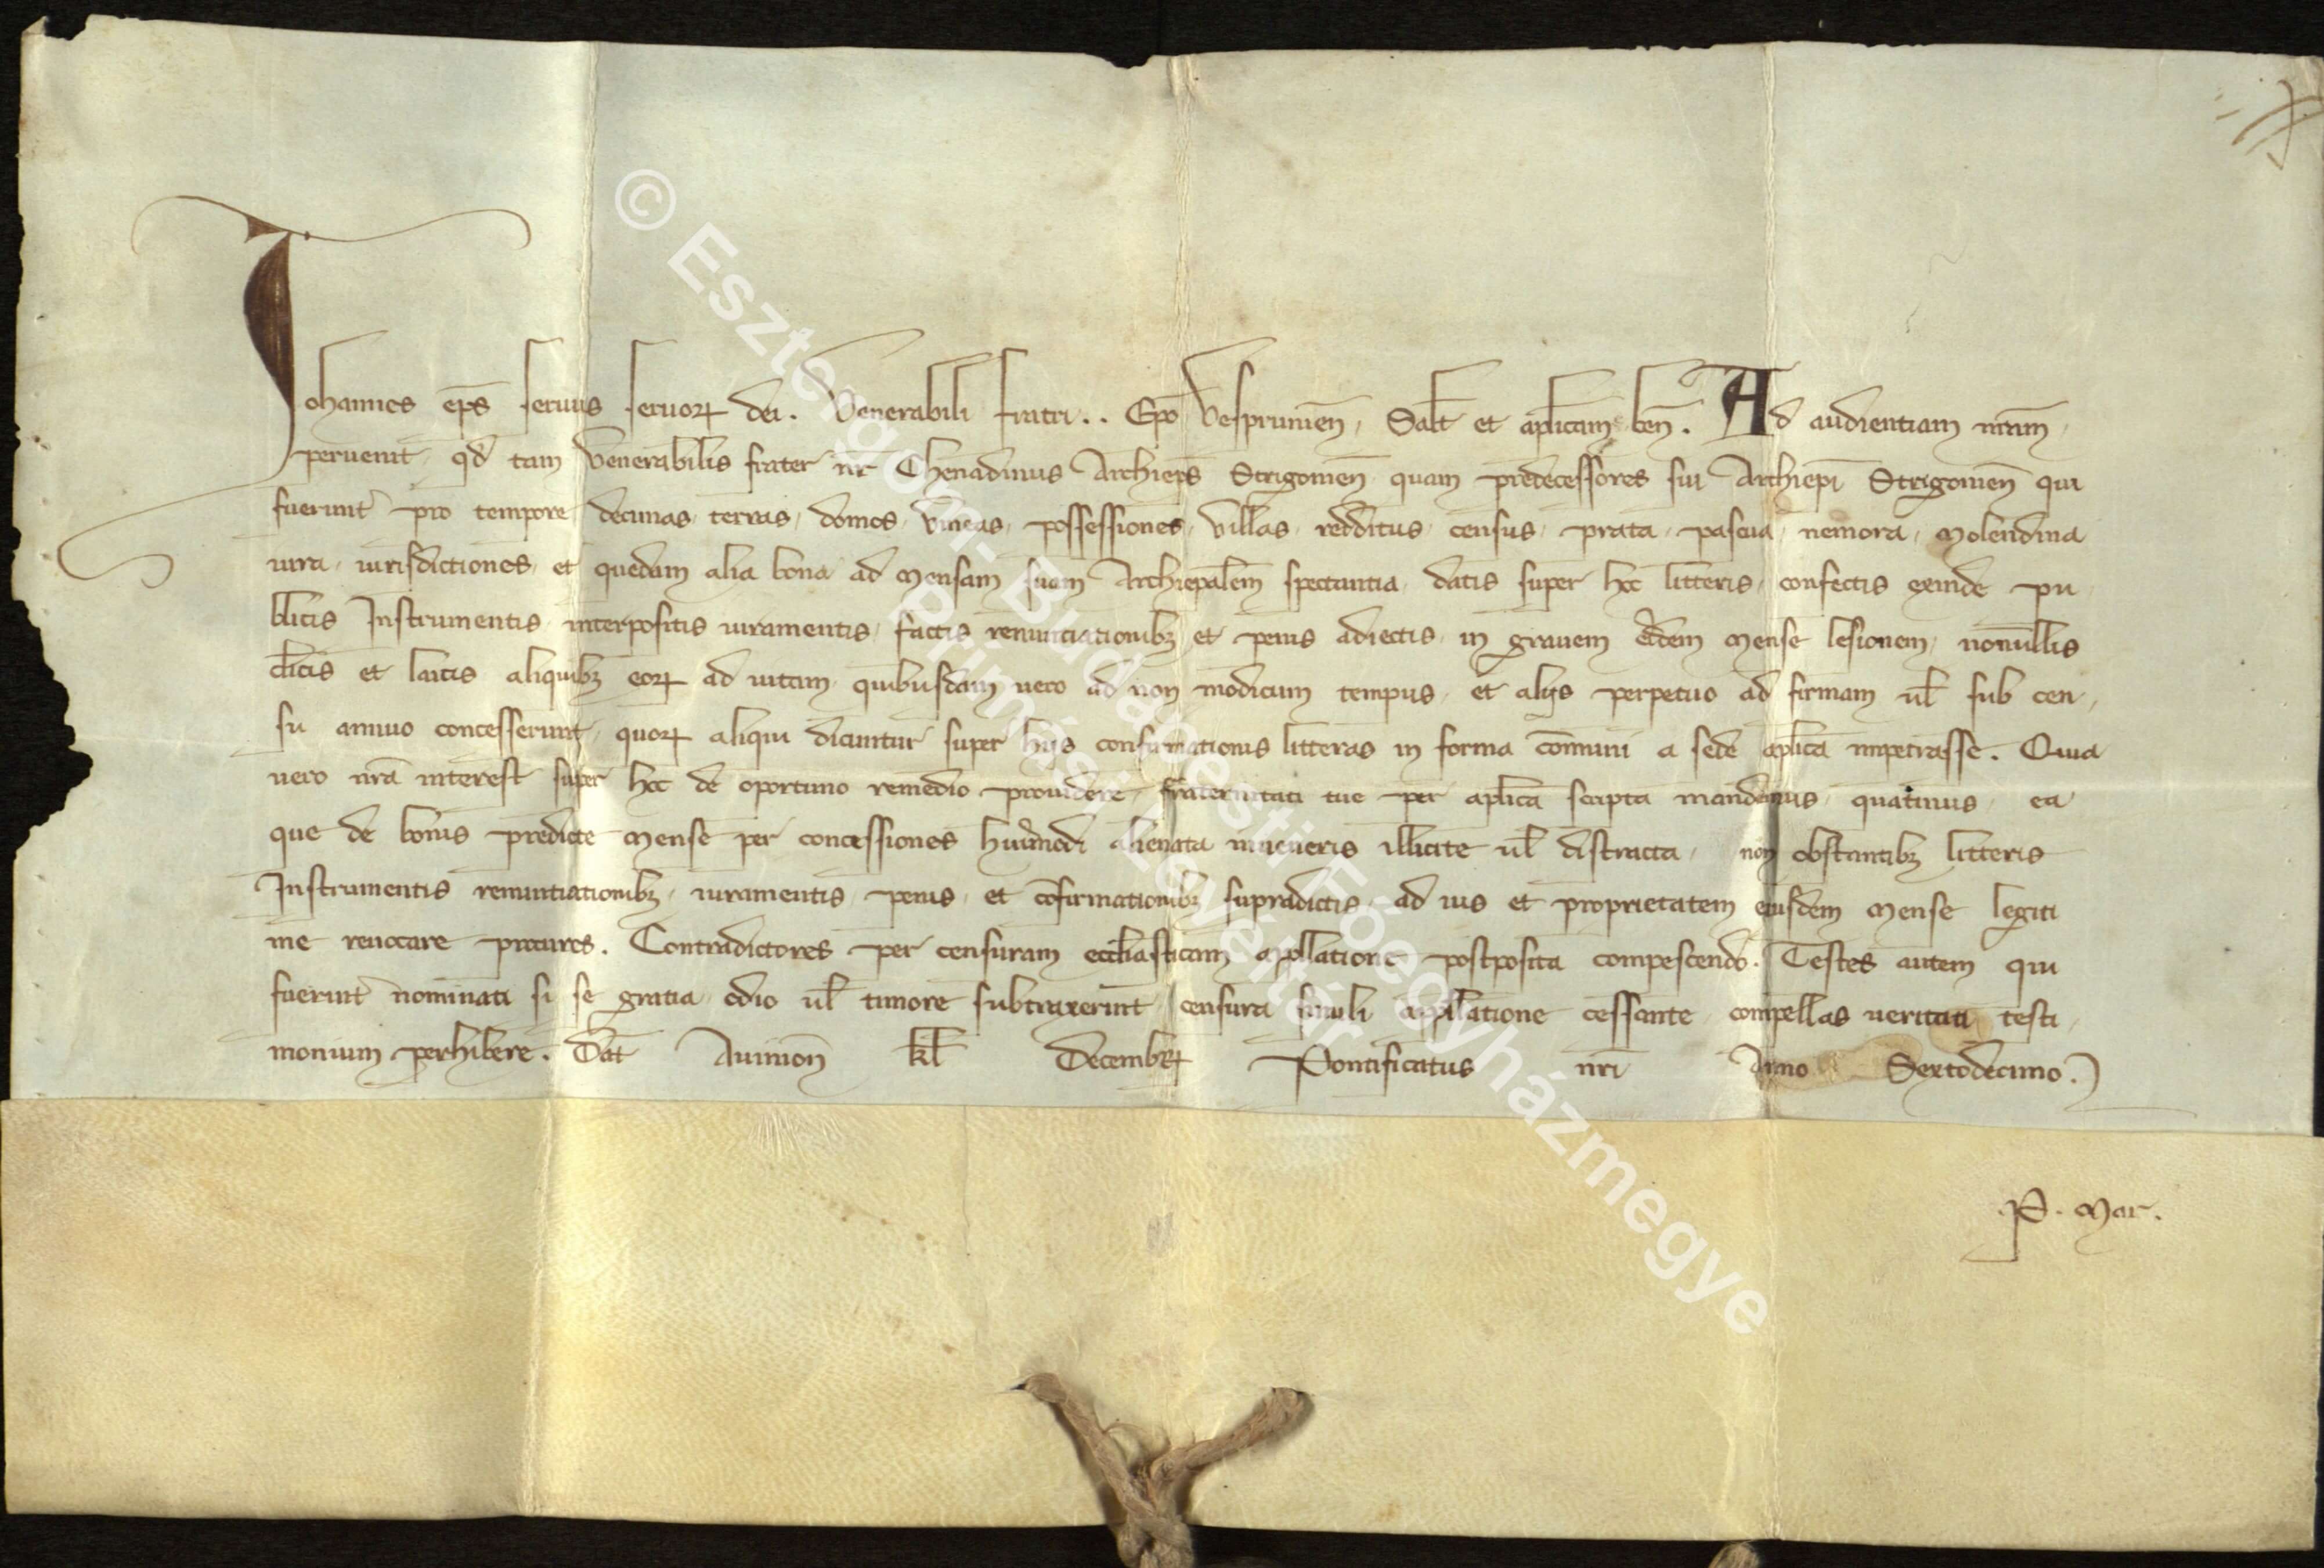 Johannes ep̄s seruus seruoꝝ dei. Venerabili fratri . . Ep̄o Vesprimien̄, Salt̄ et ap̄licam ben̄. Ad audientiam nr̄am
peruenit qd̄ tam Venerabilis frater nr̄ Chenadinus Archiep̄s Strigonien̄ quam predecessores sui Archiep̄i Strigonien̄ qui
fuerunt pro tempore decimas, terras, domos, vineas, possessiones, villas, redditus, census, prata, pascua, nemora, Molendina
iura, iurisdictiones, et quedam alia bona ad Mensam suam Archiep̄alem spectantia, datis super hoc litteris, confectis exinde pu
blicis Instrumentis, interpositis iuramentis, factis renuntiationibꝫ et penis adiectis, in grauem eiusdem Mense lesionem, nonnullis
cl̄icis et laicis aliquibꝫ eoꝝ ad uitam, quibusdam uero ad non modicum tempus, et alijs perpetuo ad firmam ul̄ sub cen,
su annuo concesserunt, quoꝝ aliqui dicuntur super hijs confirmationis litteras in forma com̄uni a sede ap̄lica impetrasse. Quia
uero nr̄a interest super hoc de oportuno remedio prouidere, fraternitati tue per ap̄lica scripta mandamus, quatinus, ea
que de bonis predicte Mense per concessiones huiusmodi alienata inueneris illicite ul̄ distracta, non obstantibꝫ litteris
Instrumentis renuntiationibꝫ, iuramentis, penis, et cōfirmationibꝫ supradictis, ad ius et proprietatem eiusdem Mense legiti
me reuocare procures. Contradictores per censuram eccl̄iasticam appellatione postposita compescendo. Testes autem qui
fuerint nominati si se gratia, odio ul̄ timore subtraxerint, censura simili appellatione cessante, compellas ueritati testi,
monium perhibere. Dat̄ Auinion̄ kl̄ Decembꝝ Pontificatus nr̄i Anno Sextodecimo.
.P. Mar.
© Esztergom-Budapesti Főegyházmegye
Prímási Levéltár